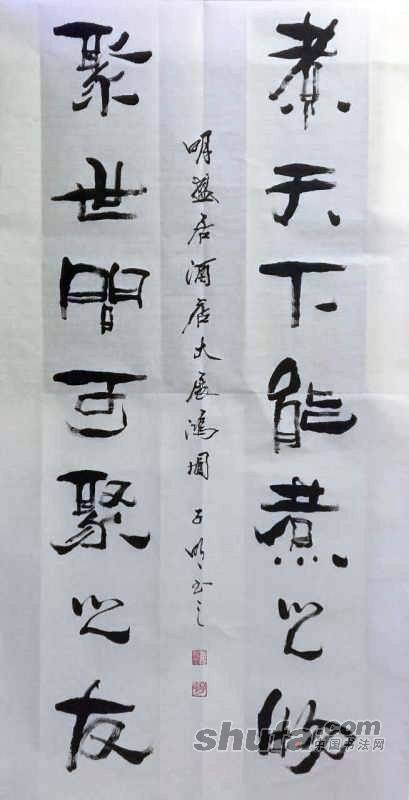 煮天下能煮之物
聚世間可聚之友
明居酒店大展鸿圖
子明书之
shufa.com
中国书法网